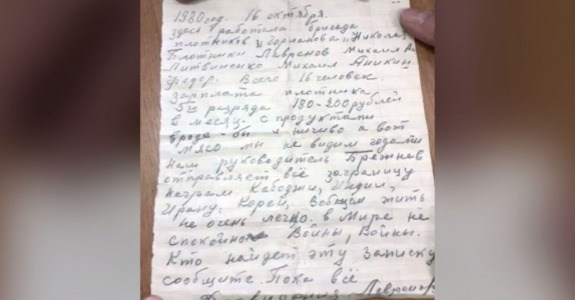 1980 год. 16 октября.
Здесь работала бригада
плотников Горланова Николая
Плотники Лавренов Михаил
Литвиненко Михаил Аникин
Федор. Всего 16 человек.
Зарплата плотника
5го разряда 180-200 рублей
в месяц. с продуктами
вроде-бы и ничиво а вот
мясо мы не видим годами
Наш руководитель Брежнев
отправляет всё заграницу
Неграм Кабоджи, Индии,
Ирану, Кореи, Вобщем жить
не очень легко. в Мире не
спокойно Войны, Войны.
Кто найдет эту записку
сообщите. Пока всё